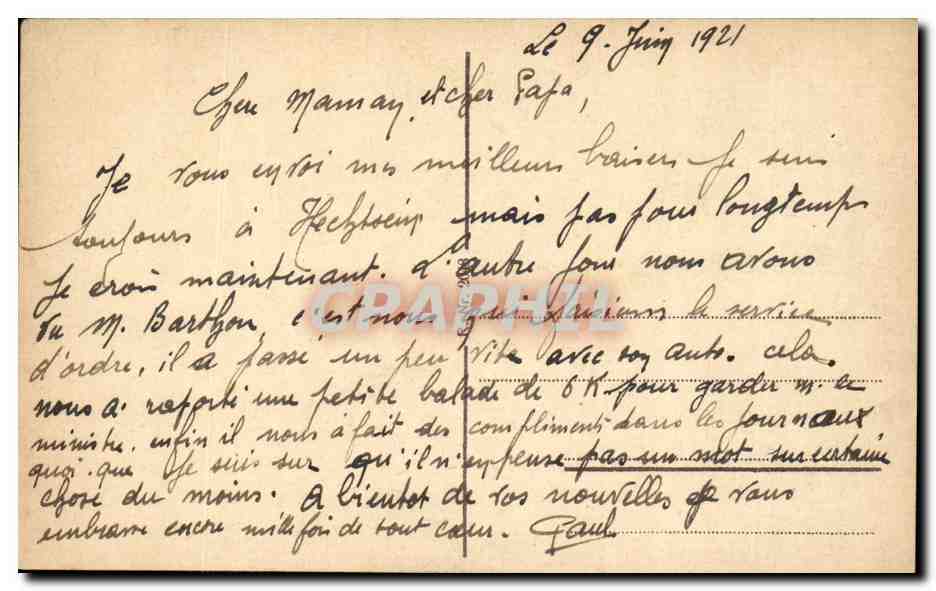 Le 9. Juin 1921
Chere Maman, et cher Papa,
Je vous envoi mes meilleurs baisers Je suis
toujours à mais pas pour longtemps
Je crois maintenant. L'autre jour nous avons
vu M. Barthou, c'est nous qui faisions le service
d'ordre, il a passé un peu vite avec son auto. cela
nous a raporté une petite balade de 6 K pour garder M. le
ministre. enfin il nous a fait des compliments dans les Journaux
quoi que Je suis sur qu'il n'en pense pas un mot sur certaine
chose du moins. A bientot de vos nouvelles Je vous
embrasse encore mille fois de tout cœur. Paul
CPAPHIL